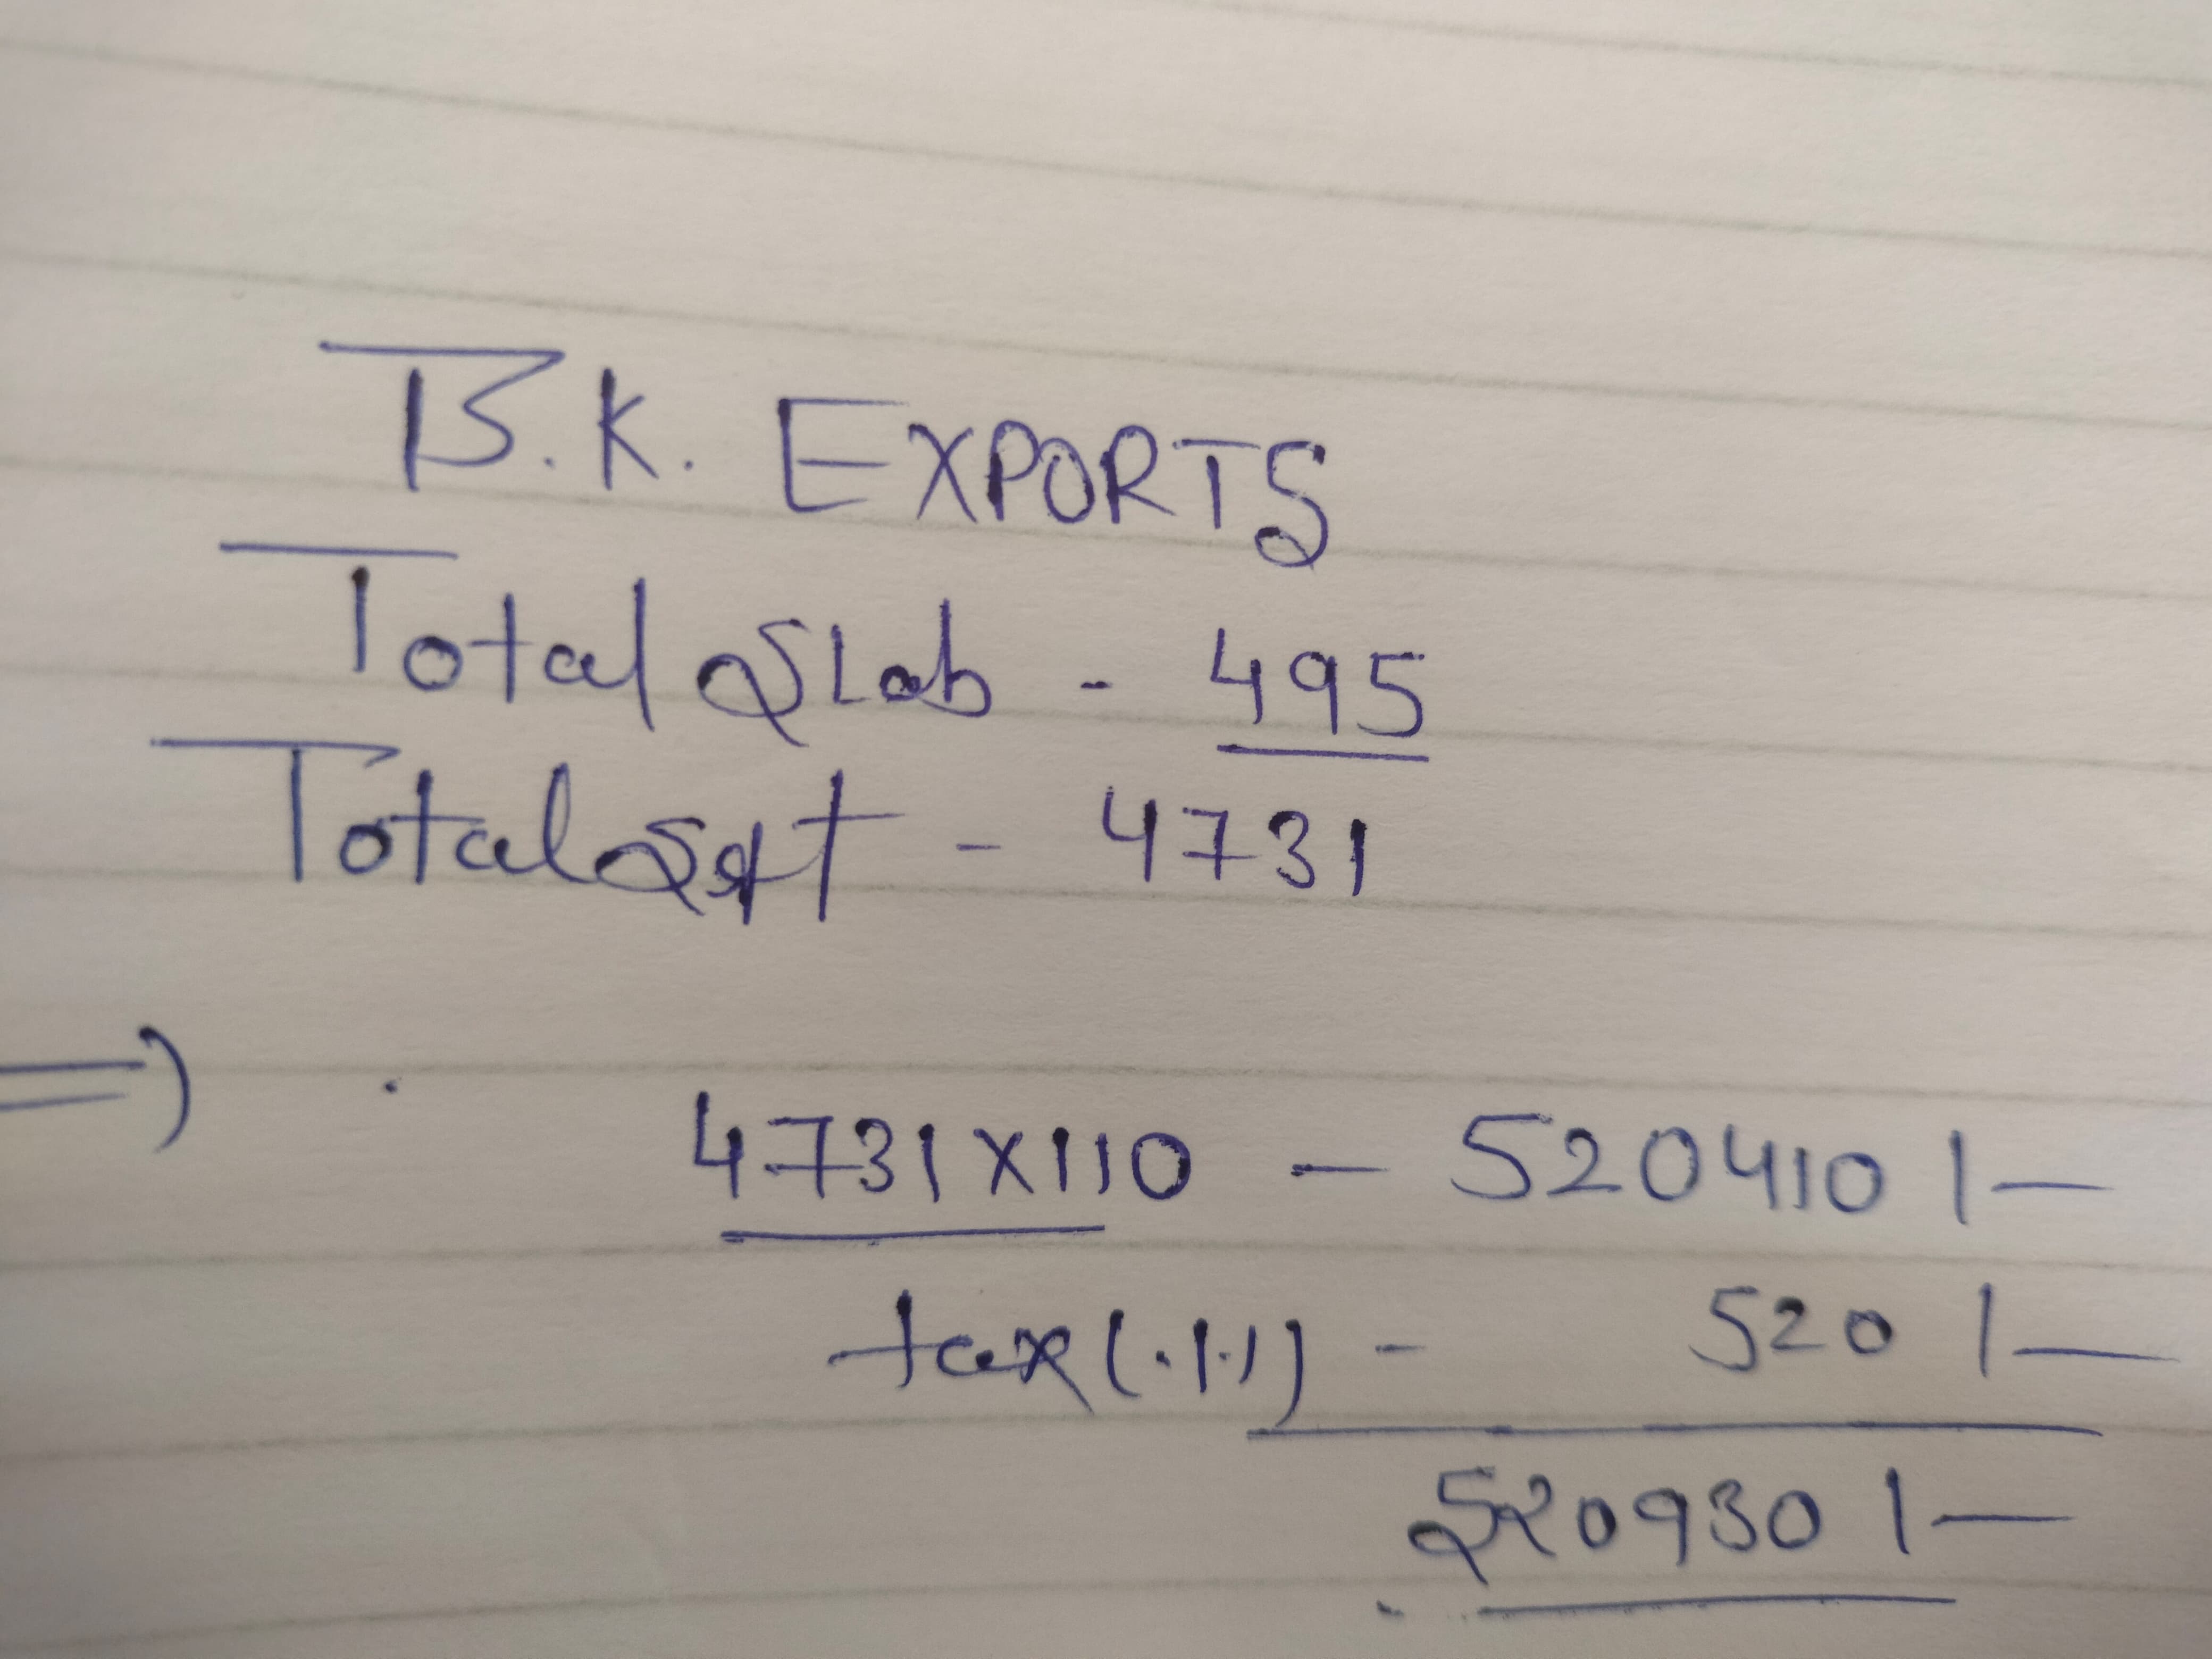 B.K. EXPORTS
Total SLab - 495
Total Sqft - 4731
=>
4731 x 110 - 520410/-
tax (.1%) - 520/-
520930/-